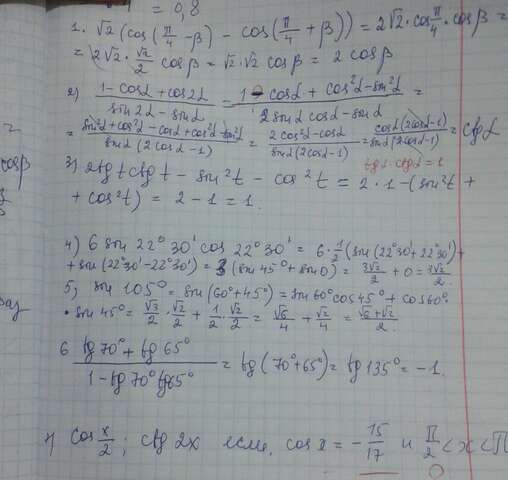 = 0,8
1. √2 (cos(π/4 - β) - cos(π/4 + β)) = 2√2 · cos π/4 · cos β =
= 2√2 · √2/2 cos β = √2 · √2 cos β = 2 cos β
2) (1 - cos α + cos 2α)/(sin 2α - sin α) = (1 - cos α + cos²α - sin²α)/(2 sin α cos α - sin α) =
= (sin²α + cos²α - cos α + cos²α - sin²α)/(sin α (2 cos α - 1)) = (2 cos²α - cos α)/(sin α (2 cos α - 1)) = (cos α (2 cos α - 1))/(sin α (2 cos α - 1)) = ctg α
tg t · ctg t = 1
3) 2 tg t ctg t - sin²t - cos²t = 2 · 1 - (sin²t +
+ cos²t) = 2 - 1 = 1.
4) 6 sin 22°30' cos 22°30' = 6 · 1/2 (sin (22°30' + 22°30') +
+ sin (22°30' - 22°30') = 3 (sin 45° + sin 0) = 3√2/2 + 0 = 3√2/2.
5) sin 105° = sin (60° + 45°) = sin 60° cos 45° + cos 60° ·
· sin 45° = √3/2 · √2/2 + 1/2 · √2/2 = √6/4 + √2/4 = (√6 + √2)/2.
6 (tg 70° + tg 65°)/(1 - tg 70° tg 65°) = tg (70° + 65°) = tg 135° = -1.
cos x/2 ; ctg 2x если, cos x = - 15/17 и π/2 < x < π
cos β